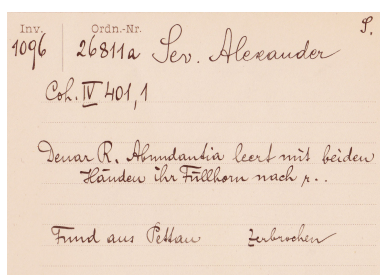 Inv. Ordn.-Nr. S.
1096 26811a Sev. Alexander
Coh. IV 401,1
Denar R. Abundantia leert mit beiden
Händen ihr Füllhorn nach r..
Fund aus Pettau zerbrochen